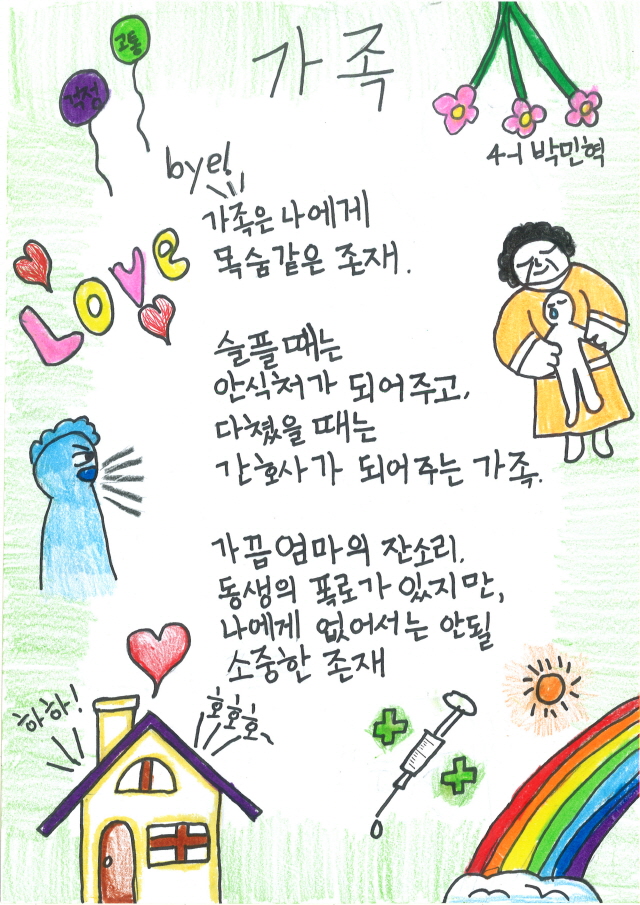 고통
걱정
가족
bye!
4-1 박민혁
가족은 나에게
목숨같은 존재.
LOVE
슬플때는
안식처가 되어주고,
다쳤을 때는
간호사가 되어주는 가족.
가끔 엄마의 잔소리,
동생의 폭로가 있지만,
나에게 없어서는 안될
소중한 존재
하하!
호호호